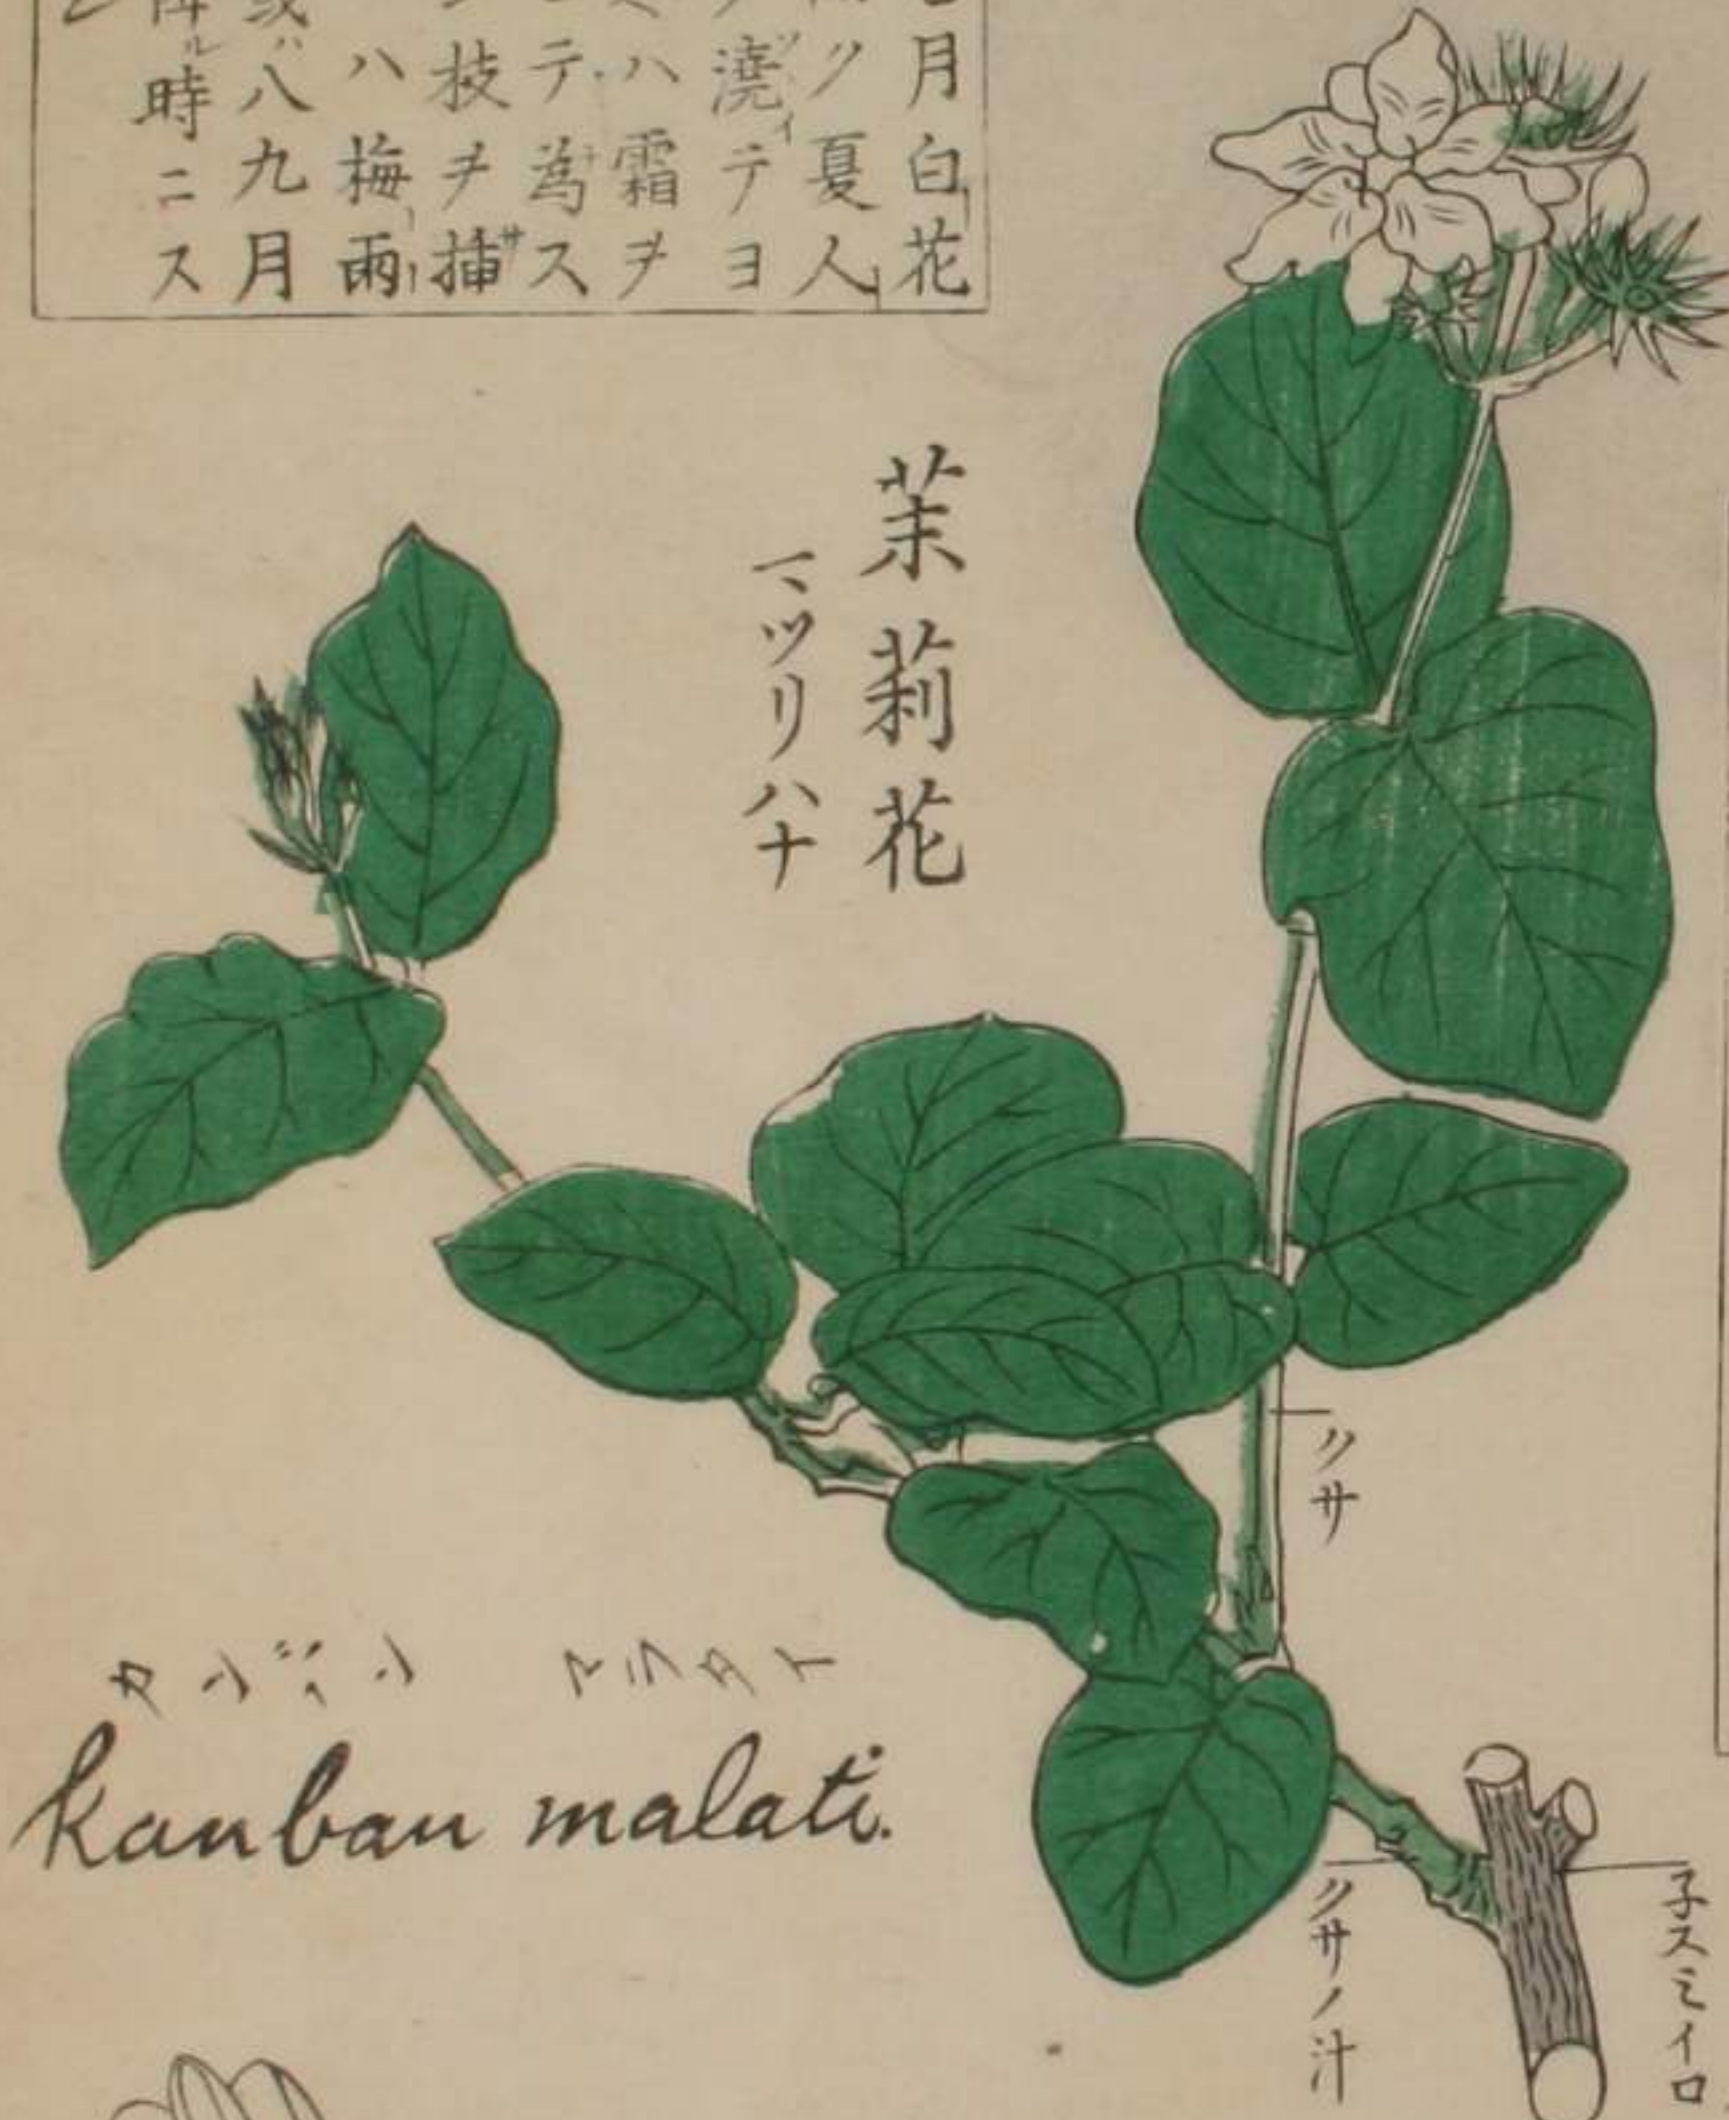 月白花
ク夏人
澆イテヨ
ハ霜ヲ
テ為ス
枝ヲ揷
ハ梅雨
或ハ八九月
降ル時ニス
茉莉花
マツリハナ
クサ
カンバン マラタイ
kanban malati.
クサノ汁
子スミイロ